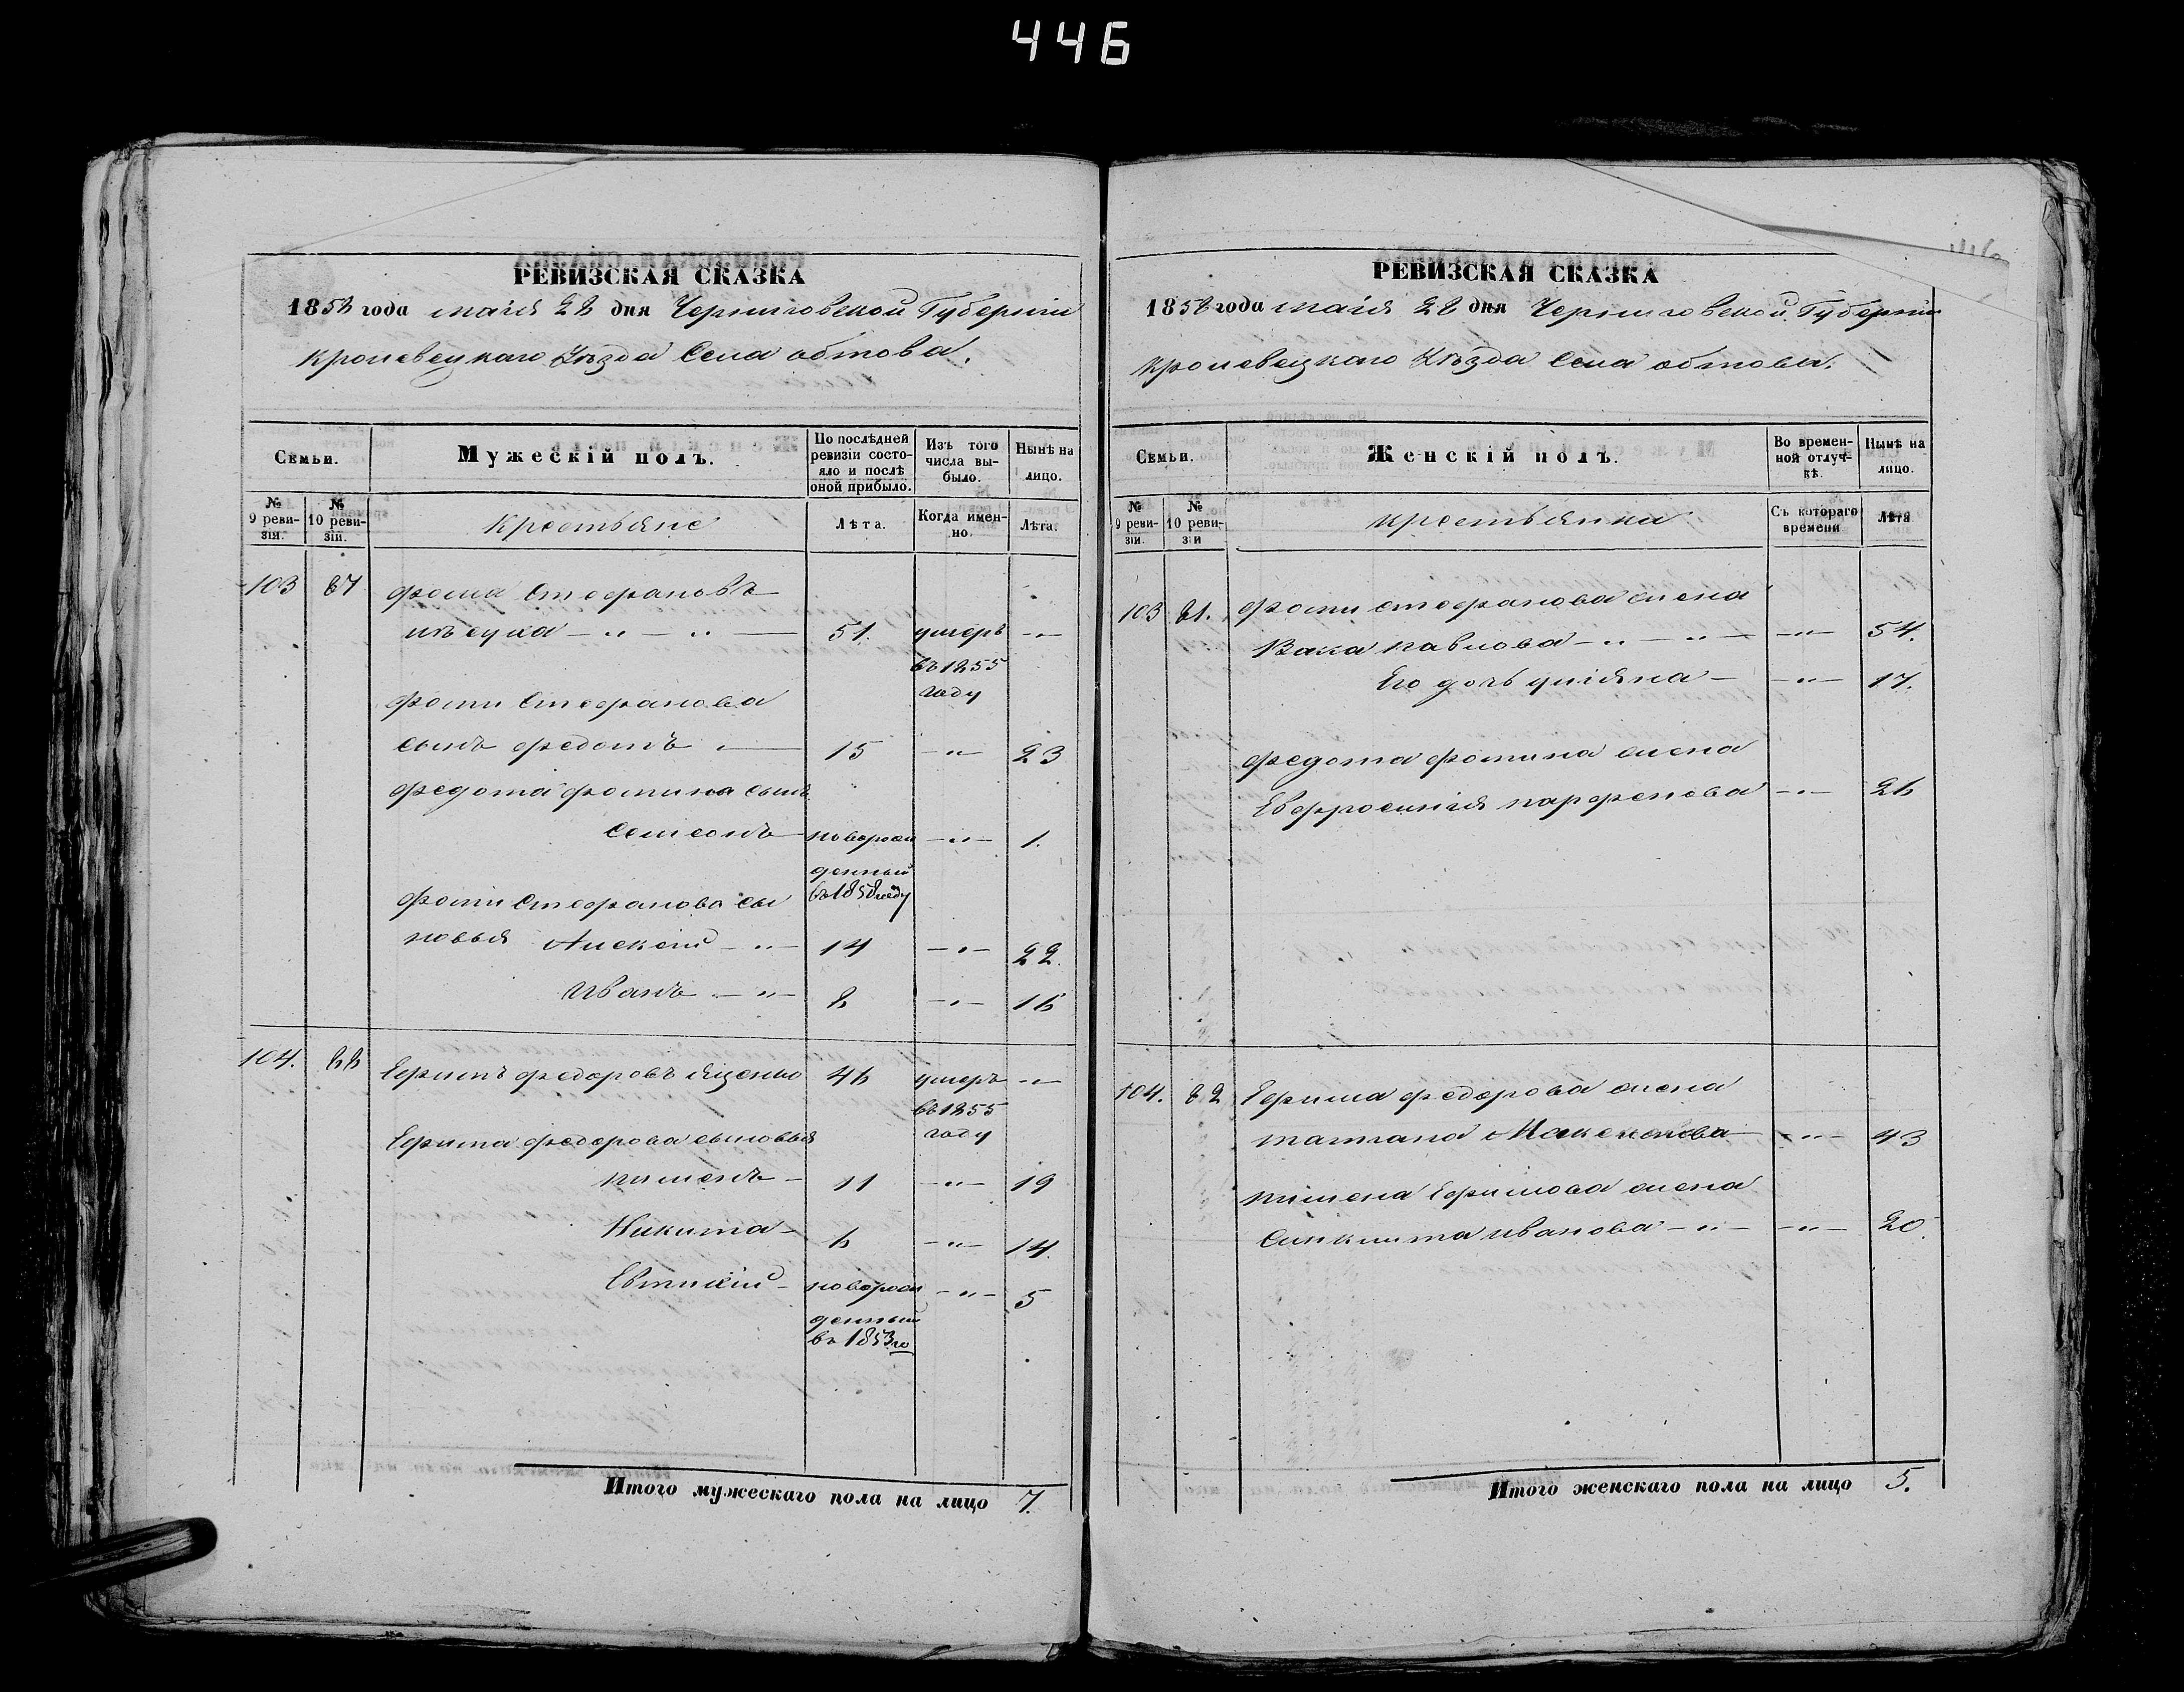 446
РЕВИЗСКАЯ СКАЗКА
1858 года маія 28 дня Черниговской Губерніи
Кролевецкаго Уѣзда Села обтова.
Семьи.
Мужескій полъ.
По послѣдней ревизіи состояло и послѣ оной прибыло.
Изъ того числа выбыло.
Нынѣ на лицо.
№ 9 ревизіи.
№ 10 ревизіи.
Крестьяне
Лѣта.
Когда именно.
Лѣта.
103
Фома Стефановъ
51. умеръ въ 1855 году
Фомы Стефанова
сынъ Федотъ 15 23
Федота Фомина сынъ
Семіонъ новорожденный въ 1858 году 1.
Фомы Стефанова сы
новья Алексей 14 22.
Иванъ 8 16
104. 88 Ефимъ Федоровъ Яценко 46 умеръ въ 1855 году
Ефима Федорова сыновья
Пименъ 11 19
Никита 6 14.
Евтихій новорожденный въ 1853 го 5
Итого мужескаго пола на лицо 7.
РЕВИЗСКАЯ СКАЗКА
1858 года маія 28 дня Черниговской Губерніи
Кролевецкаго Уѣзда Села обтова.
Семьи.
Женскій полъ.
Во временной отлучкѣ.
Нынѣ на лицо.
№ 9 ревизіи.
№ 10 ревизіи
Крестьянки
Съ котораго времени
Лѣта
103 81. Фомы Стефанова жена
Павлова 54.
Его дочь Уліяна 17.
Федота Фомина жена
Евфросинія Парфенова 26
104. 82 Ефима Федорова жена
Татіана 43
Пимена Ефимова жена
Синклита Иванова 20.
Итого женскаго пола на лицо 5.